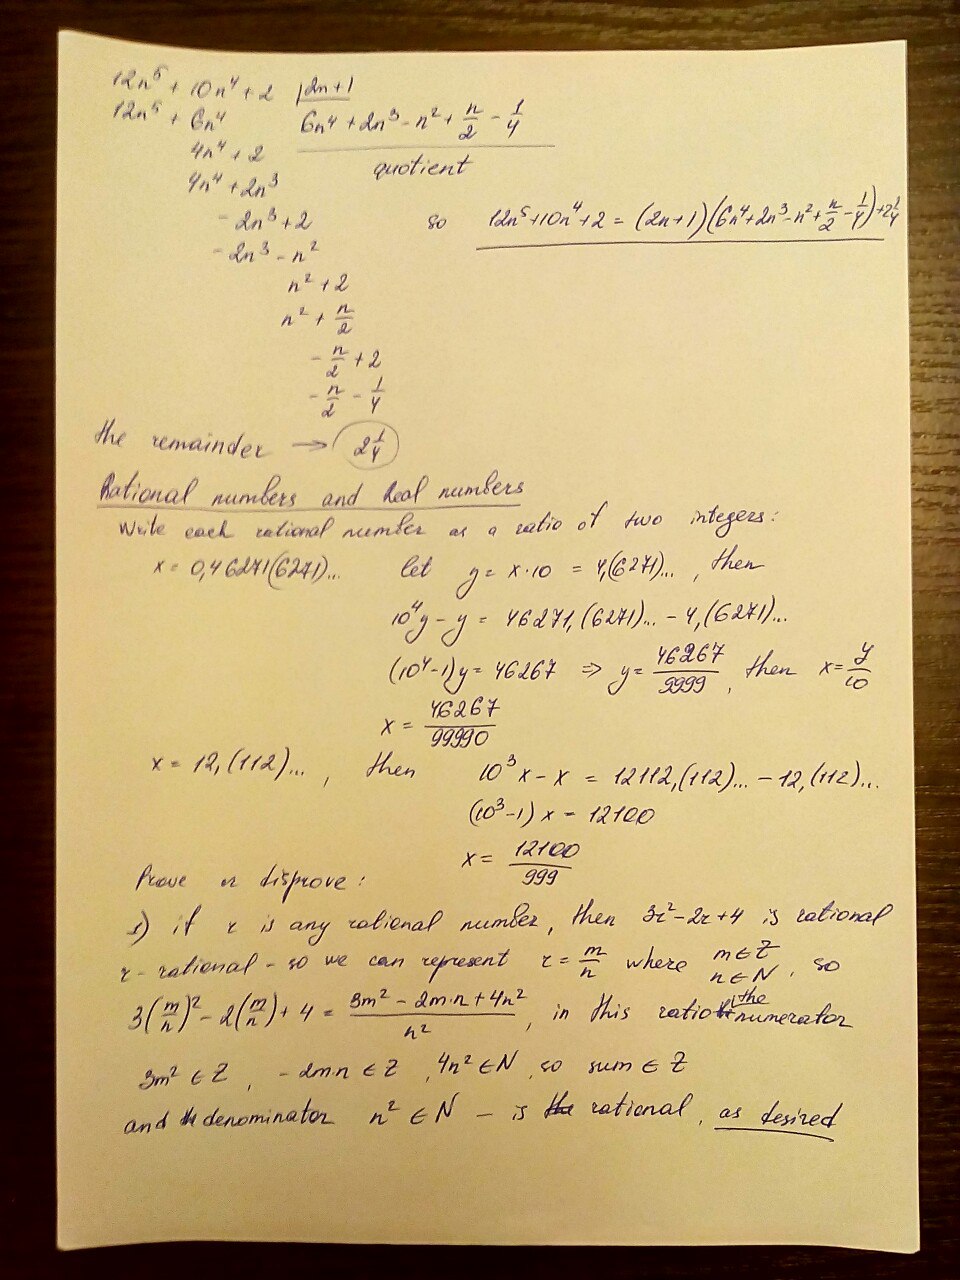 12n⁵ + 10n⁴ + 2 |2n+1
12n⁵ + 6n⁴ 6n⁴ + 2n³ - n² + n/2 - 1/4
4n⁴ + 2 quotient
4n⁴ + 2n³
- 2n³ + 2 so 12n⁵ + 10n⁴ + 2 = (2n+1)(6n⁴ + 2n³ - n² + n/2 - 1/4) + 2 1/4
- 2n³ - n²
n² + 2
n² + n/2
- n/2 + 2
- n/2 - 1/4
the remainder → 2 1/4
Rational numbers and Real numbers
Write each rational number as a ratio of two integers:
x = 0,46271(6271)... let y = x·10 = 4,(6271)... , then
10⁴y - y = 46271,(6271)... - 4,(6271)...
(10⁴-1)y = 46267 ⇒ y = 46267/9999 , then x = y/10
x = 46267/99990
x = 12,(112)... , then 10³x - x = 12112,(112)... - 12,(112)...
(10³-1)x = 12100
x = 12100/999
Prove or disprove:
1) if r is any rational number, then 3r² - 2r + 4 is rational
r - rational - so we can represent r = m/n where m ∈ Z n ∈ N , so
3(m/n)² - 2(m/n) + 4 = (3m² - 2m·n + 4n²)/n² , in this ratio the numerator
3m² ∈ Z , - 2m·n ∈ Z , 4n² ∈ N , so sum ∈ Z
and denominator n² ∈ N - is rational, as desired